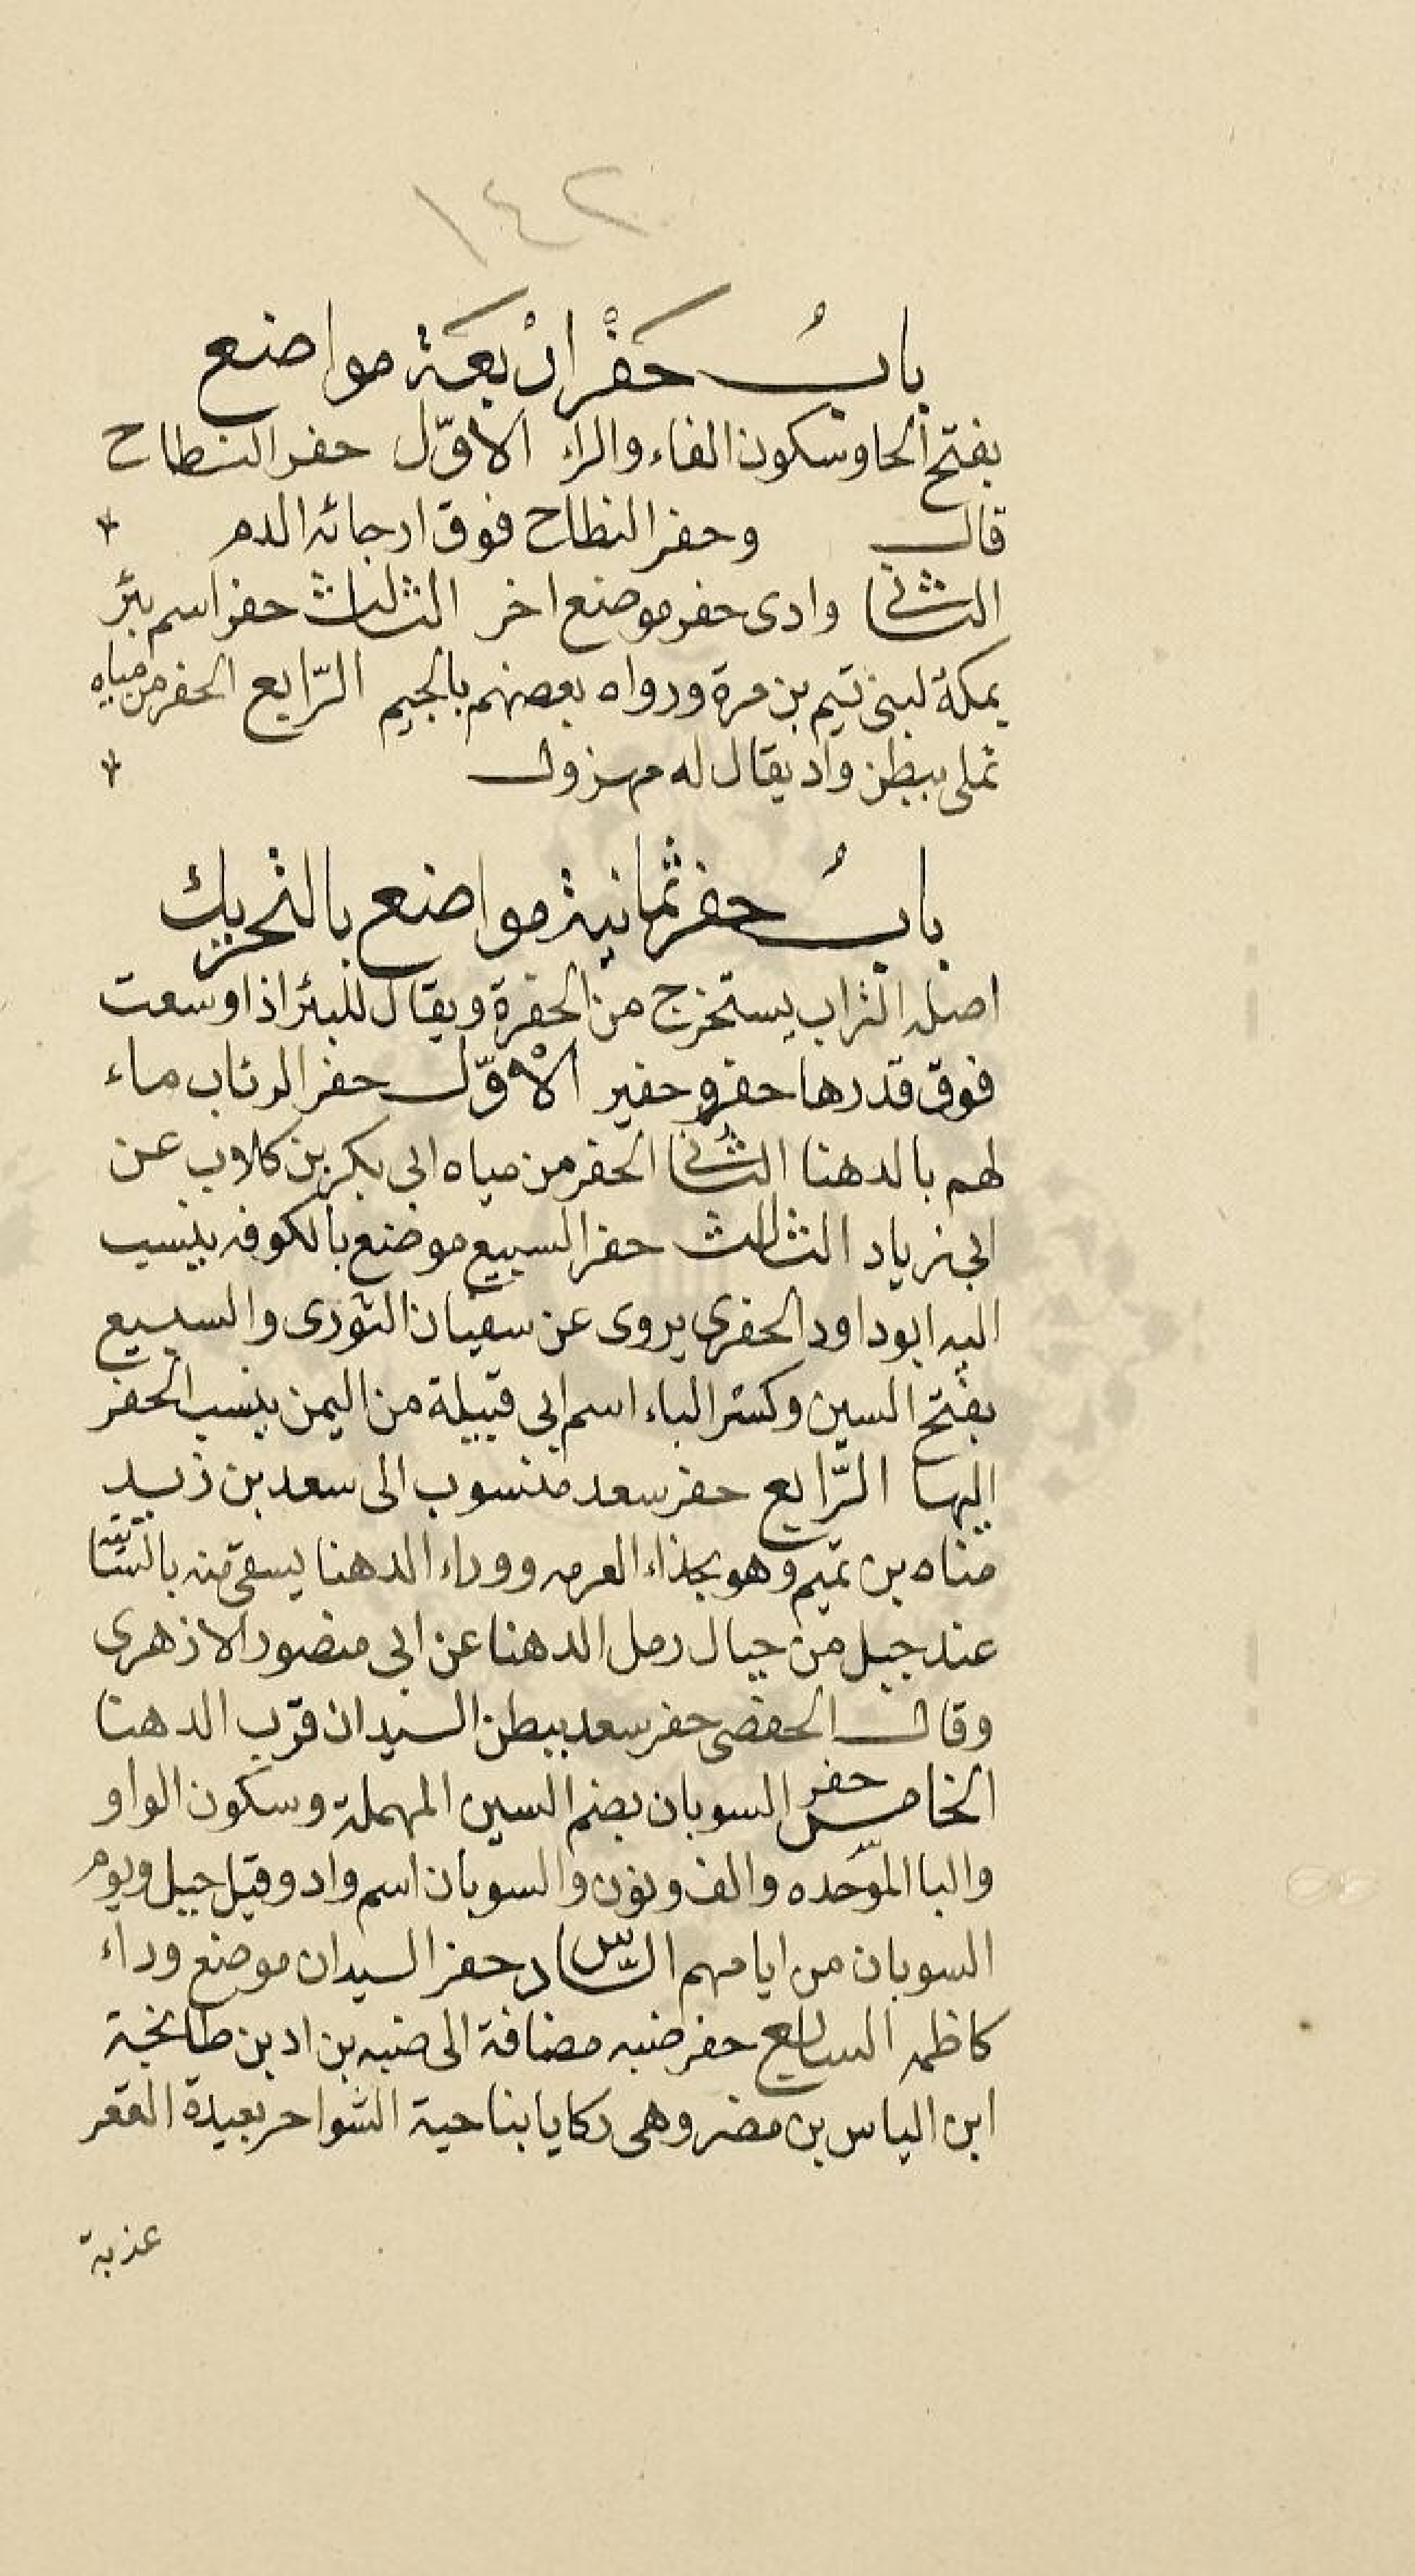 ١٤٢
بابُ حَفْر ارْبعَة مواضع
بفتح الحا وسكون الفاء والراء الاوّل حفر البطاح
قال وحفر البطاح فوق ارجائه الدم
الثانى وادى حفر موضع اخر الثالث حفر اسم بئر
بمكة لبنى تيم بن مرة ورواه بعضهم بالجيم الرّابع الحفر من مياه
نملى ببطن واد يقال له مهزول
بابُ حفر ثمانية مواضع بالتحريك
اصله التراب يستخرج من الحفرة ويقال للبئر اذا وسعت
فوق قدرها حفر وحفير الاوّل حفر الرباب ماء
لهم بالدهنا الثانى الحفر من مياه ابى بكر بن كلاب عن
ابى زياد الثالث حفر السبيع موضع بالكوفه ينسب
اليه ابو داود الحفرى يروى عن سفيان الثورى والسبيع
بفتح السين وكسر الباء اسم ابى قبيلة من اليمن ينسب الحفر
اليها الرّابع حفر سعد منسوب الى سعد بن زيد
مناه بن تميم وهو بحذاء العرمه ووراء الدهنا يسقى منه بالسّتا
عند جبل من جبال رمل الدهنا عن ابى منصور الازهرى
وقال الحفصى حفر سعد ببطن السيدان قرب الدهنا
الخامس حفر السوبان بضم السين المهملة وسكون الواو
والبا الموّحده والف ونون والسوبان اسم واد وقيل جبل ويوم
السوبان من ايامهم السّادس حفر السيدان موضع وراء
كاظمه السابع حفر ضبه مضافة الى ضبه بن اد بن طابخة
ابن الياس بن مضر وهى ركايا بناحية الشواجر بعيدة القعر
عذبة